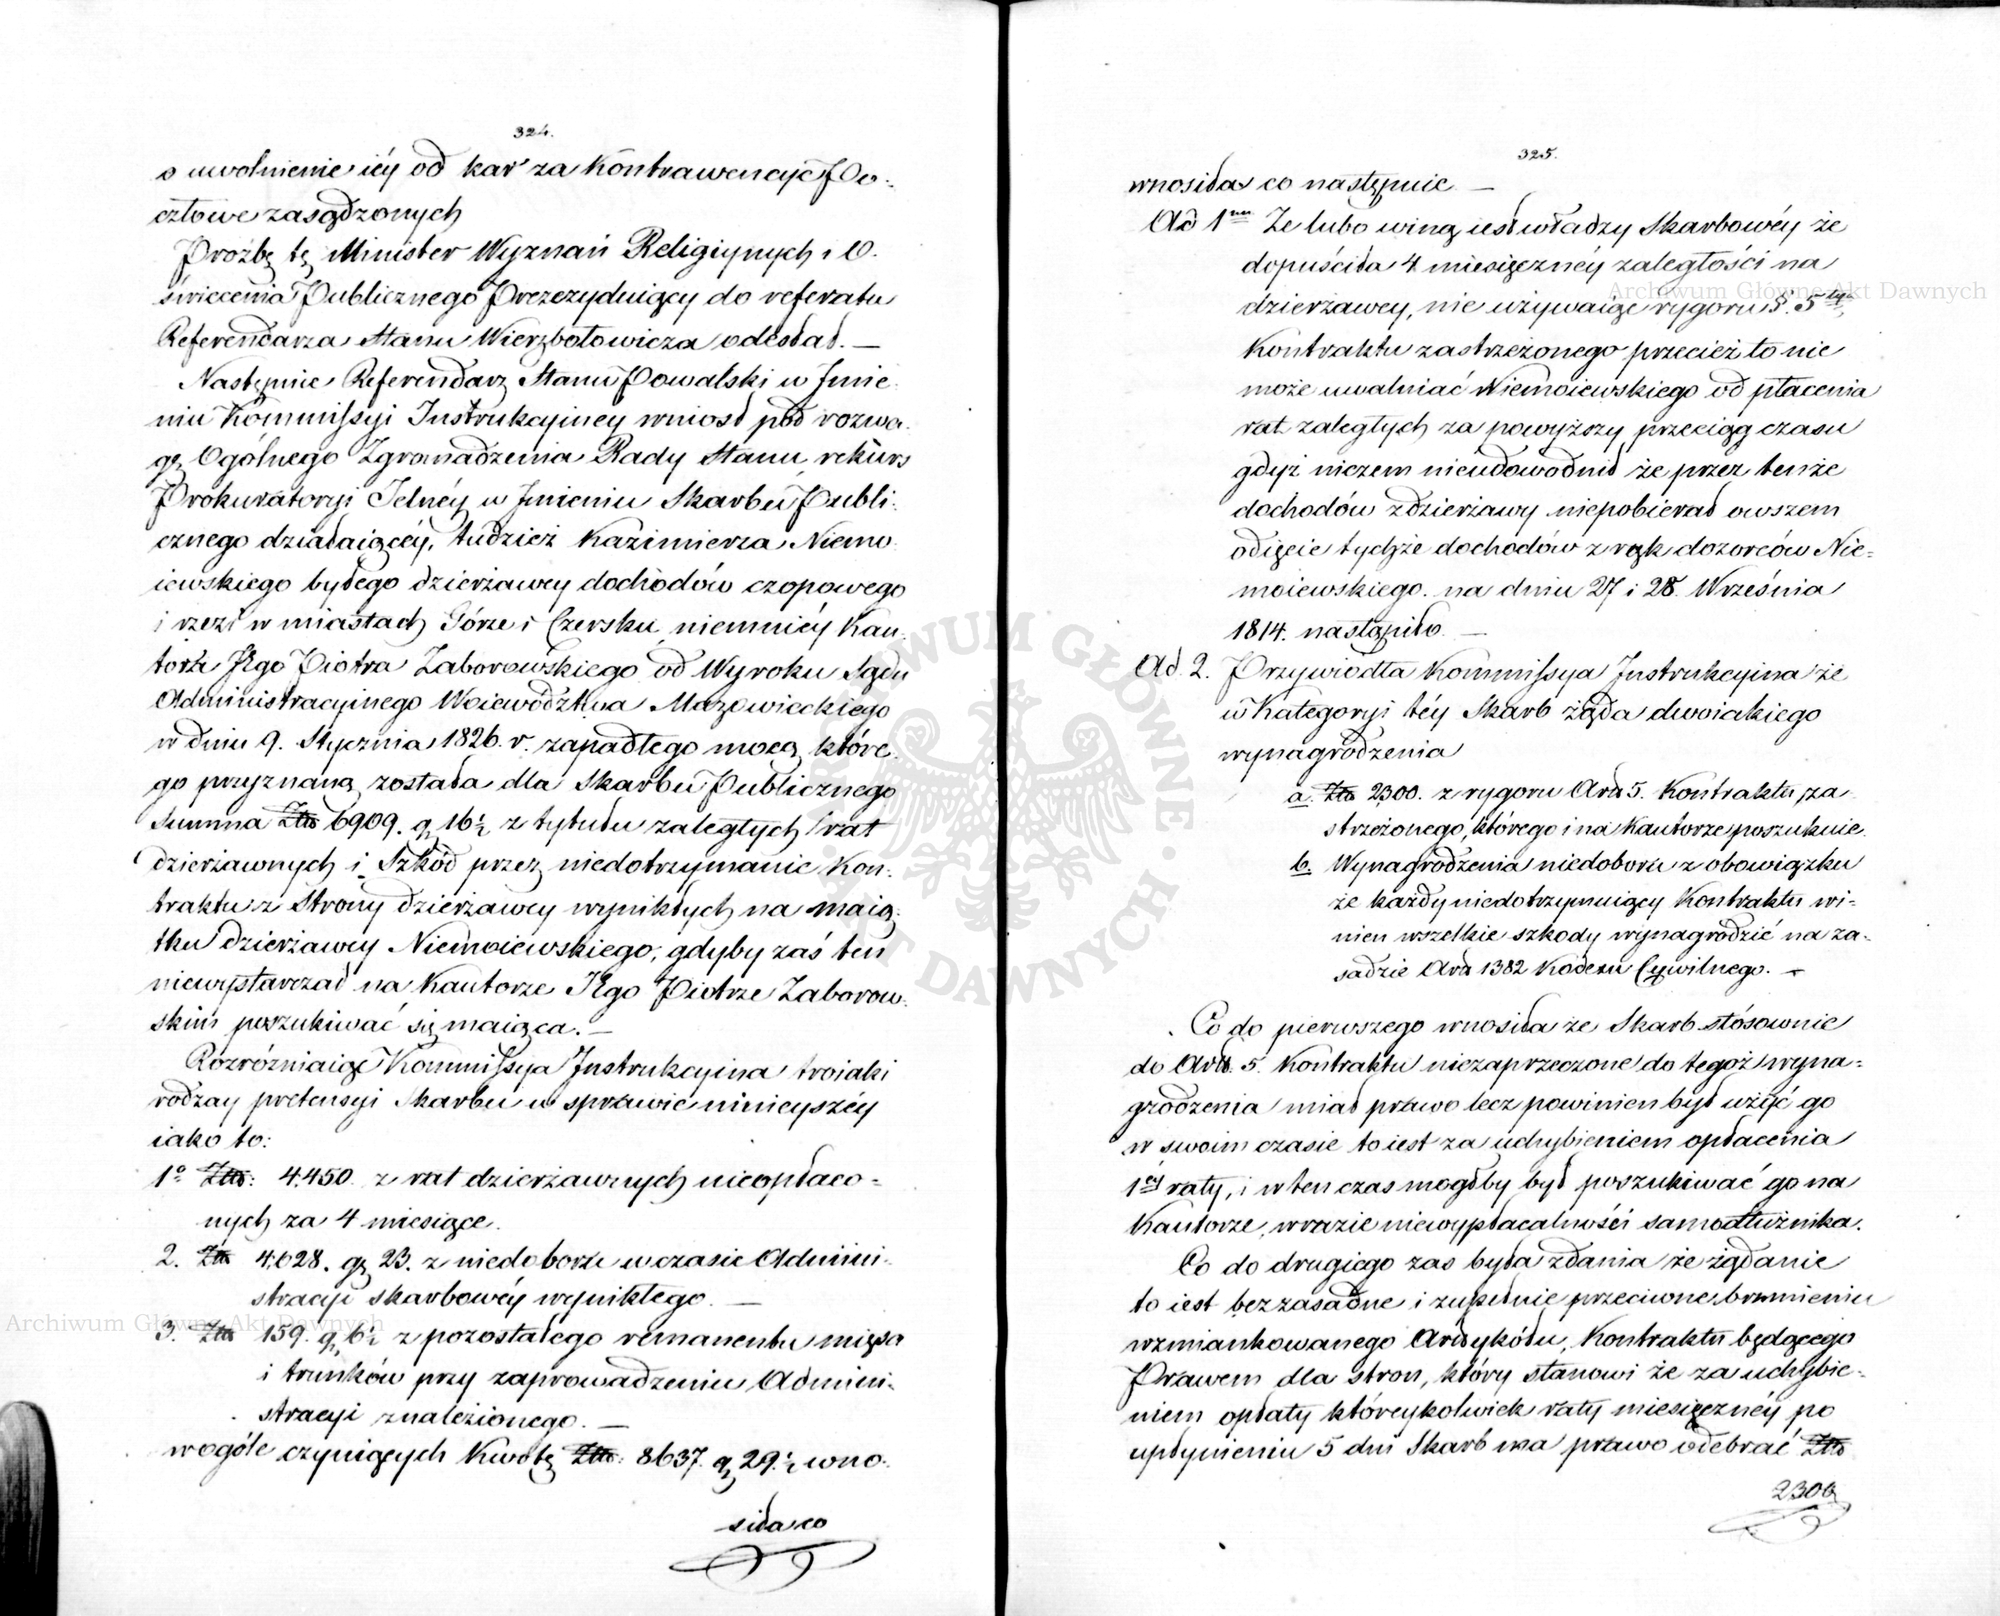 324.
o uwolnienie iéy od kar za Kontrawencyę Po-
cztowe zasądzonych
Prożbę tę Minister Wyznań Religiynych i O.
świecenia Publicznego Prezezyduiący do referatu
Referendarza Stanu Wierzbołowicza odesłał. —
Następnie Referendarz Stanu Powalski w Jmie-
niu Kommissyi Instrukcyiney wniosł pod rozwa-
gę Ogólnego Zgromadzenia Rady Stanu rekurs
Prokuratoryi Jelnéy w Jmieniu Skarbu Publi-
cznego działaiącéy, tudzież Kazimierza Niemo-
iewskiego byłego dzierżawcy dochodów czopowego
i rzezi w miastach Górze i Czersku niemniéy Kau-
tora JPgo Piotra Zaborowskiego od Wyroku Sądu
Administracyinego Woiewodztwa Mazowieckiego
w dniu 9. Stycznia 1826. r. zapadłego mocą które-
go przyznaną została dla Skarbu Publicznego
Summa Złto 6909. g 16½ z tytułu zaległych rat
dzierżawnych i Szkód przez niedotrzymanie Kon-
traktu z Strony dzierżawcy wynikłych na maią-
tku dzierżawcy Niemoiewskiego, gdyby zaś ten
niewystarczał na Kautorze JPgo Piotrze Zaborow-
skim poszukiwać się maiąca. —
Rozróżniaiąc Kommissya Instrukcyina troiaki
rodzay pretensyi Skarbu w sprawie ninieyszéy
iako to:
1° Złto: 4.450 z rat dzierżawnych nieopłaco-
nych za 4 miesiące.
2. Złto 4.028. g 23. z niedoboru w czasie Admini-
stracyi skarbowéy wynikłego. —
3. Złto 159. g 6½ z pozostałego remanentu mięsa
i trunków przy zaprowadzeniu Admini-
stracyi znalezionego. —
wogóle czyniących Kwotę Złto: 8637. g 29.½ wno-
siła co
325.
wnosiła co następuie —
Ad 1um Że lubo winą iest władzy Skarbowéy że
dopuściła 4 miesięcznéy zaległości na
dzierżawcy, nie używaiąc rygoru §. 5tym
Kontraktu zastrzeżonego przecież to nie
może uwalniać Niemoiewskiego od płacenia
rat zaległych za powyższy przeciąg czasu
gdyż niczem nieudowodnił że przez tenże
dochodów z dzierżawy niepobierał owszem
odięcie tychże dochodów z rąk dozorców Nie-
moiewskiego na dniu 27 i 28. Września
1814. nastąpiło. —
Ad 2. Przywiodła Kommissya Instrukcyina że
w Kategoryi téy Skarb żąda dwoiakiego
wynagrodzenia
a. Złto 2300. z rygoru Artu 5. Kontraktu za
strzeżonego, którego i na Kautorze poszukuie
b. Wynagrodzenia niedoboru z obowiązku
że każdy niedotrzymuiący Kontraktu wi-
nien wszelkie szkody wynagrodzić na za-
sadzie Artu 1382 Kodexu Cywilnego. —
Co do pierwszego wnosiła że Skarb stósownie
do Artu. 5. Kontraktu niezaprzeczone do tegoż wyna-
grodzenia miał prawo lecz powinien był użyć go
w swoim czasie to iest za uchybieniem opłacenia
1éy raty, i w ten czas mogłby był poszukiwać go na
Kautorze, w razie niewypłacalności samodłużnika.
Co do drugiego zas była zdania że żądanie
to iest bezzasadne i zupełnie przeciwne brzmieniu
wzmiankowanego Artykółu, Kontraktu będącego
Prawem dla stron, który stanowi że za uchybie-
niem opłaty któreykolwiek raty miesięcznéy po
upłynieniu 5 dni Skarb ma prawo odebrać Złto
2300
Archiwum Główne Akt Dawnych
Archiwum Główne Akt Dawnych
ARCHIWUM GŁÓWNE AKT DAWNYCH